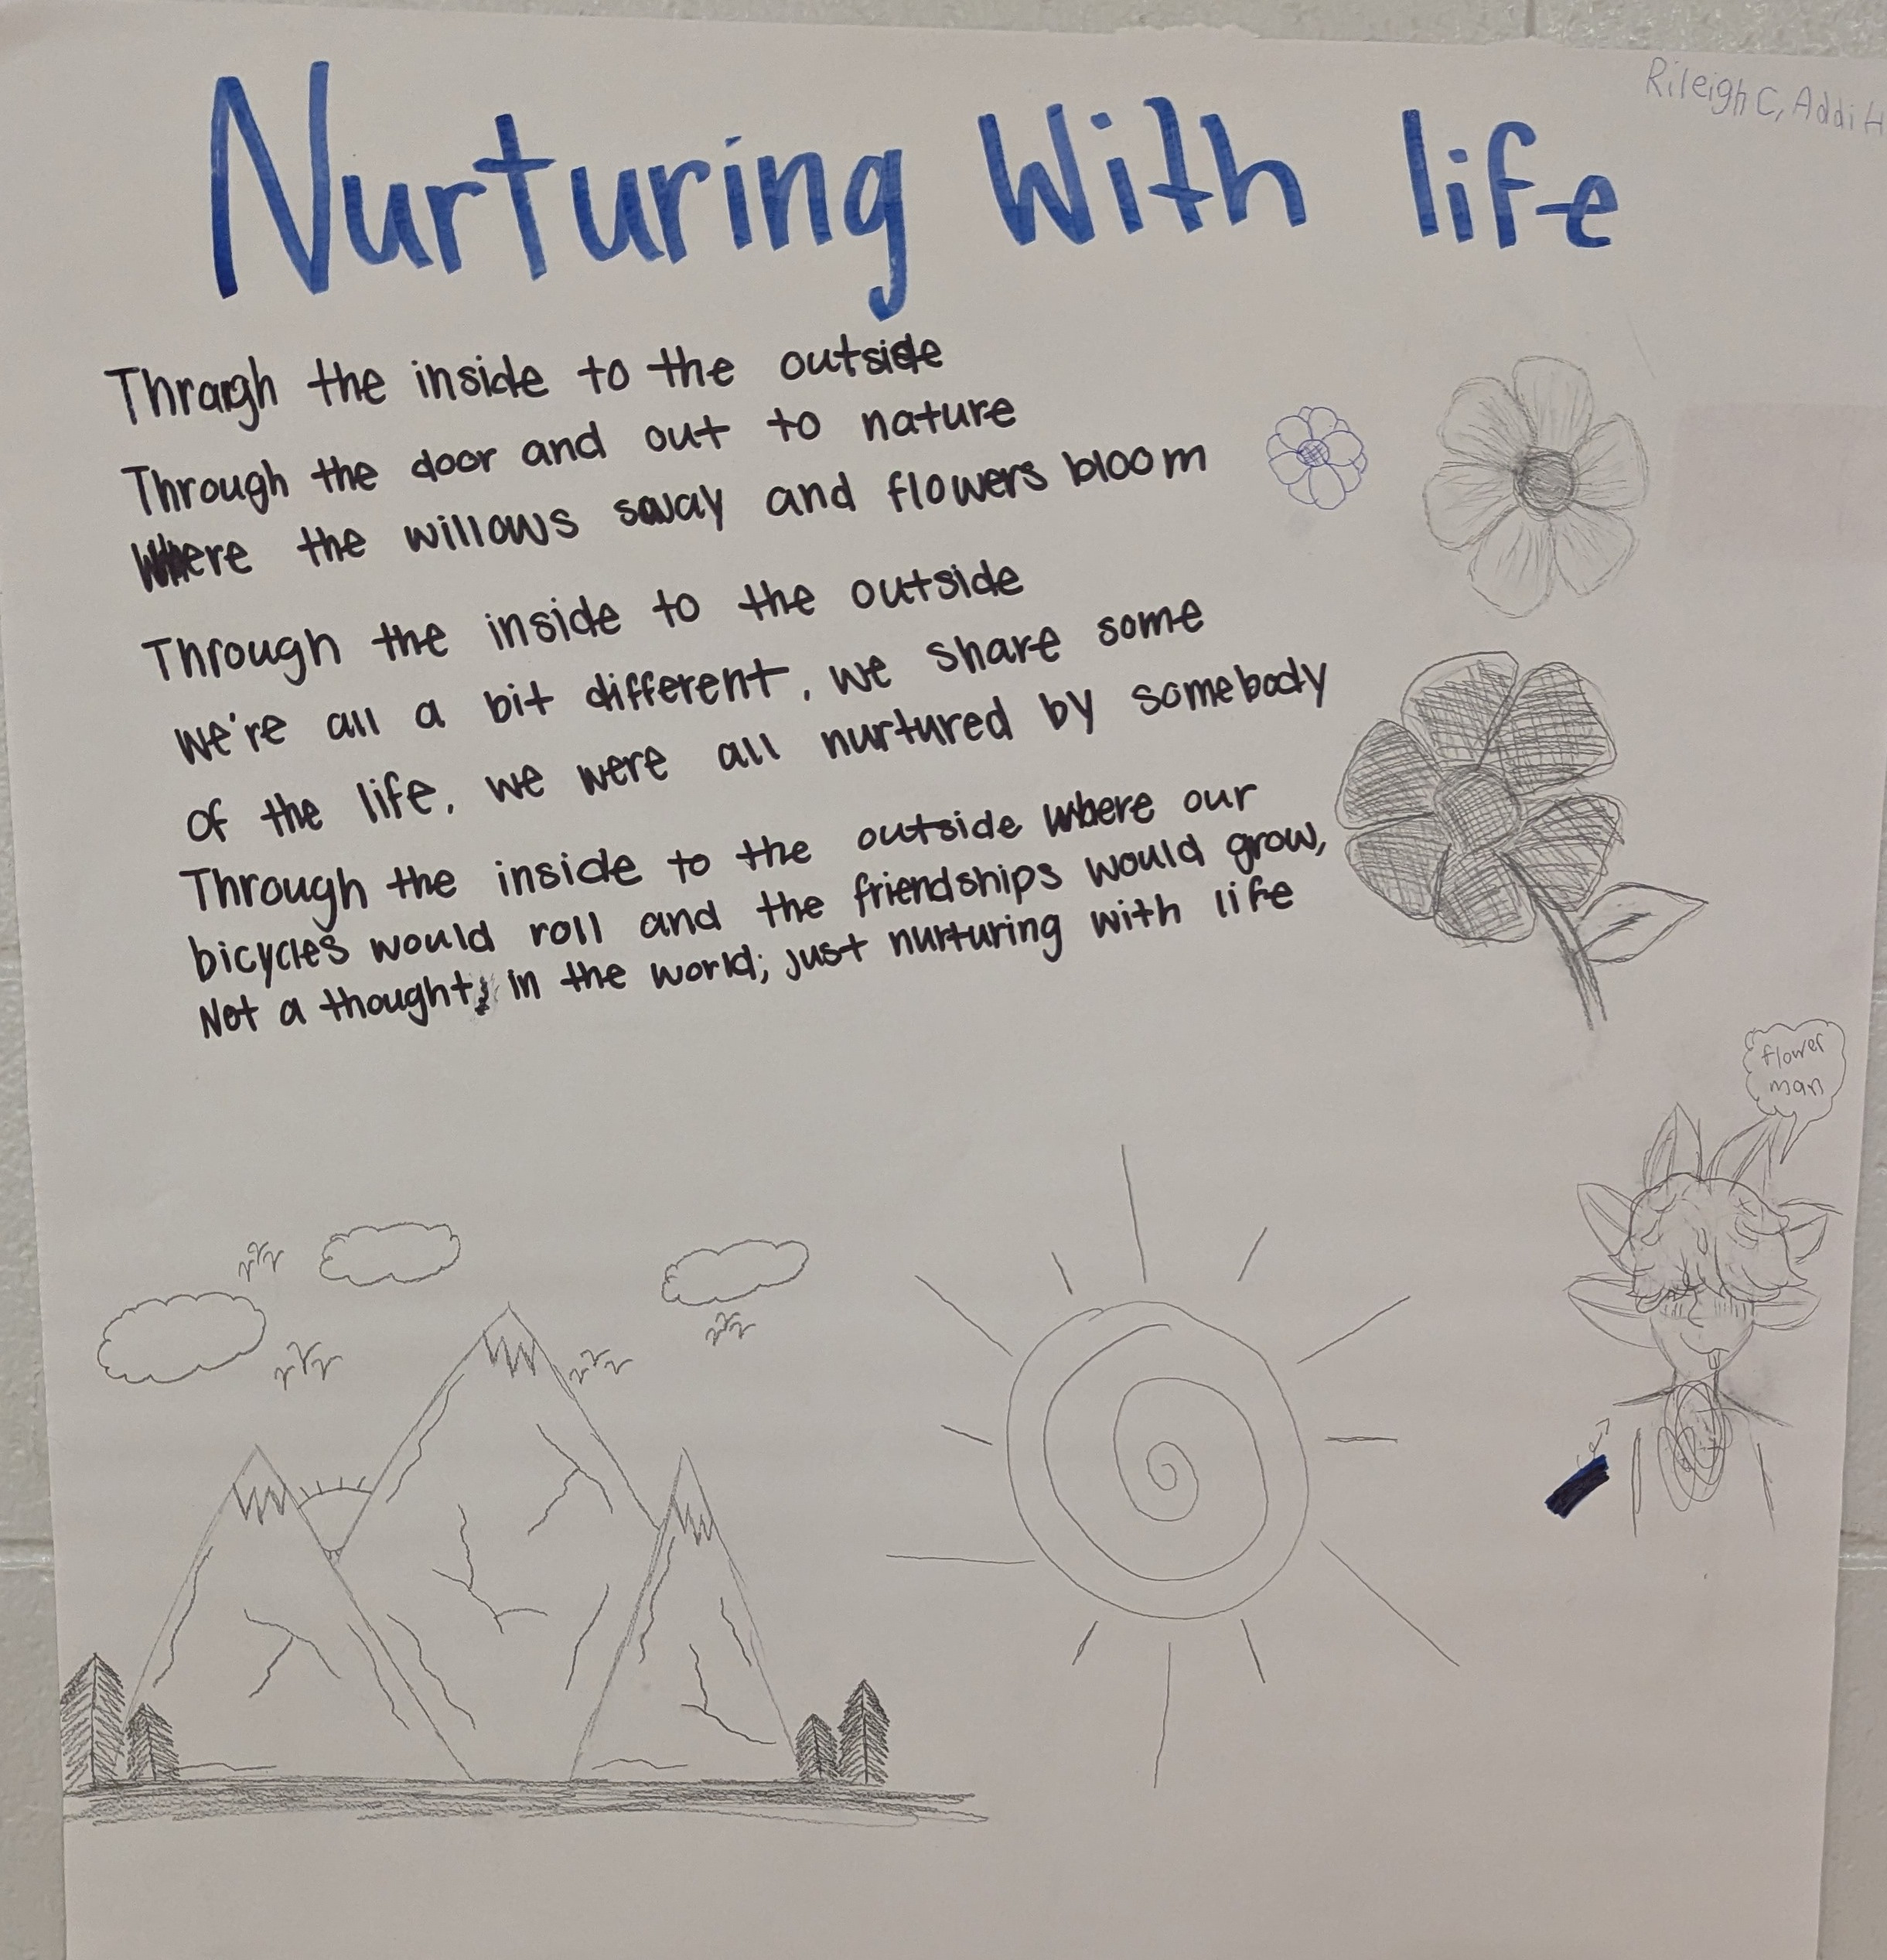 Rileigh C, Addi H
Nurturing With life
Through the inside to the outside
Through the door and out to nature
Where the willows sway and flowers bloom
Through the inside to the outside
we're all a bit different, we share some
of the life, we were all nurtured by somebody
Through the inside to the outside where our
bicycles would roll and the friendships would grow,
Not a thought; in the world; just nurturing with life
flower
man